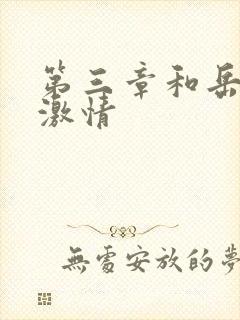 第三章和岳
激情
無處安放的夢